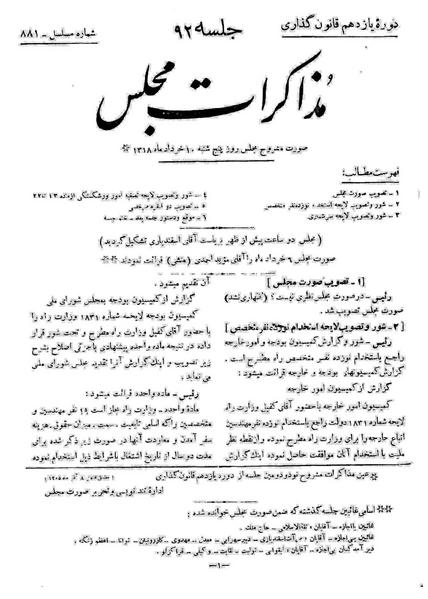 دورهٔ یازدهم قانون گذاری
جلسه ۹۲
شماره مسلسل - ۸۸۱
مذاکرات مجلس
صورت مشروح مجلس روز پنج شنبه ۱۰ خرداد ماه ۱۳۱۸
فهرست مطالب:
۱ - تصویب صورت مجلس
۲ - شور و تصویب لایحه استخدام نوزده نفر متخصص
۳ - شور و تصویب لایحه
۴ - شور و تصویب لایحه تصفیه امور ورشکستگی از ماده ۱۳ تا ۲۲
۵ - تصویب دو فقره مرخصی
۶ - موقع و دستور جلسه بعد - ختم جلسه
(مجلس دو ساعت پیش از ظهر بریاست آقای اسفندیاری تشکیل گردید)
صورت مجلس ۶ خرداد ماه را آقای مؤید احمدی (منشی) قرائت نمودند
[۱ - تصویب صورت مجلس]
رئیس - در صورت مجلس نظری نیست؟ (اظهاری نشد)
صورت مجلس تصویب شد.
[۲ - شور و تصویب لایحه استخدام نوزده نفر متخصص]
رئیس - گزارش کمیسیون بودجه و امور خارجه
راجع باستخدام نوزده نفر متخصص راه مطرح است.
گزارش کمیسیونهای بودجه و خارجه قرائت میشود:
گزارش از کمیسیون امور خارجه
کمیسیون امور خارجه با حضور آقای کفیل وزارت راه
لایحه شماره ۱۸۳۱ دولت راجع باستخدام نوزده نفر مهندسین
اتباع خارجه را برای وزارت راه مطرح نموده، و از نقطه نظر
ملیت با استخدام آنان موافقت حاصل نموده اینک گزارش
آن تقدیم میشود.
گزارش از کمیسیون بودجه بمجلس شورای ملی
کمیسیون بودجه لایحه شماره ۱۸۳۱ وزارت راه را
با حضور آقای کفیل وزارت راه مطرح و تحت شور قرار
داده در نتیجه ماده واحده پیشنهادی با جزئی اصلاح بشرح
زیر تصویب و اینک گزارش آنرا تقدیم مجلس شورای ملی
می نماید:
رئیس - ماده واحده قرائت میشود:
ماده واحده - وزارت راه مجاز است ۱۹ نفر مهندسین و
متخصصین راکه اسامی تابعیت، سمت، میزان حقوق، هزینه
سفر آمدن و معاودت آنها در صورت زیر ذکر شده برای
مدت دو سال از تاریخ اشتغال باشرایط ذیل استخدام
عین مذاکرات مشروح نود و دومین جلسه از دوره یازدهم قانون گذاری
اداره تند نویسی و تحریر صورت مجلس
اسامی غائبین جلسه گذشته که ضمن صورت مجلس خوانده شده:
غائبین با اجازه - آقایان: ثقةالاسلامی - حاج ملک.
- ۱ -